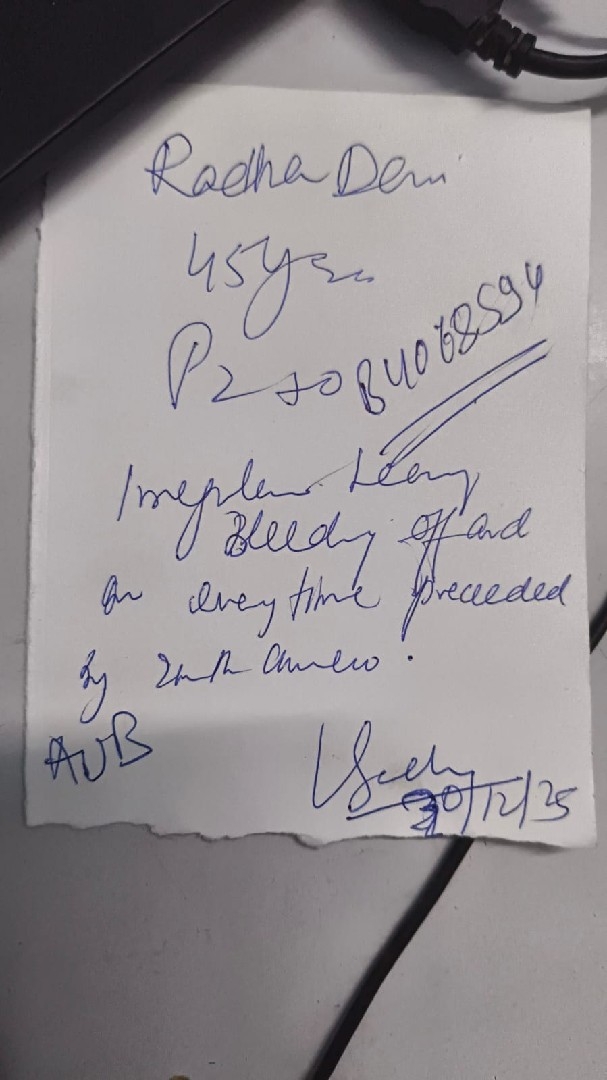 Radha Devi
45 yrs
P2+0 B4068594
Irregular heavy
Bleeding off and
on every time preceded
by 2 mth ameno.
AUB
30/12/25